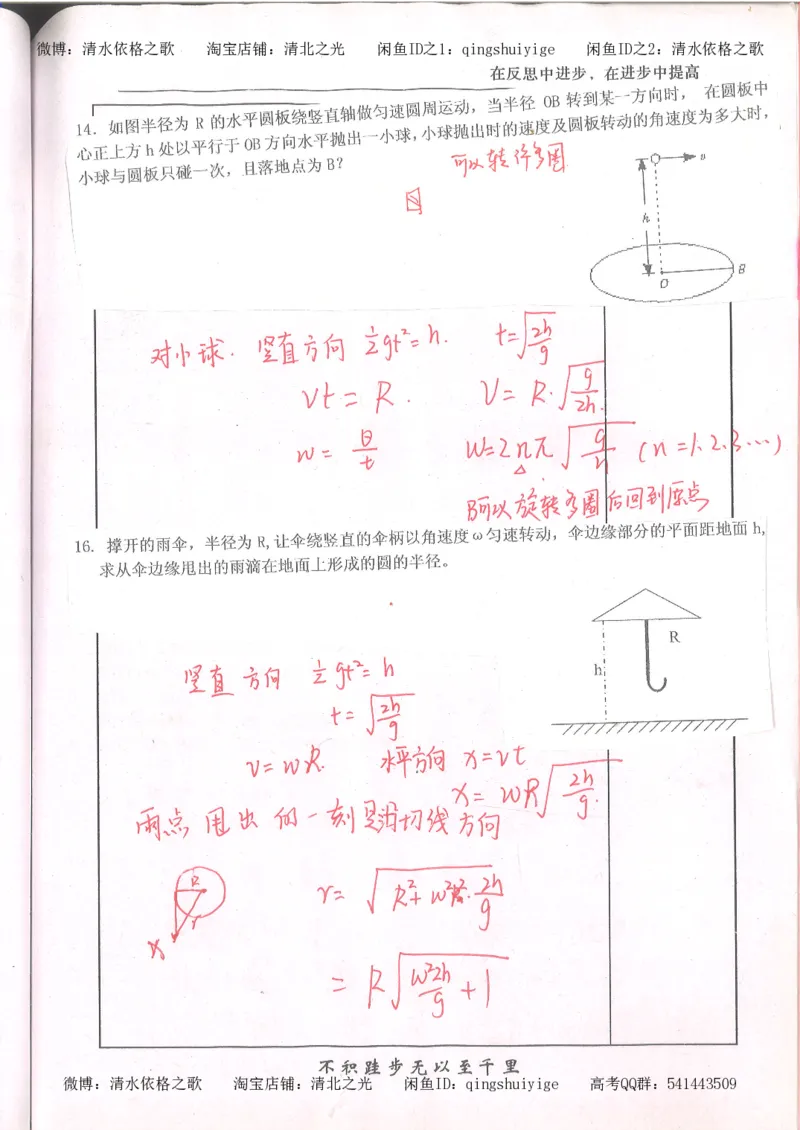 微博：清水依格之歌 淘宝店铺：清北之光 闲鱼ID之1：qingshuiyige 闲鱼ID之2：清水依格之歌
在反思中进步，在进步中提高
14. 如图半径为 R 的水平圆板绕竖直轴做匀速圆周运动，当半径 OB 转到某一方向时， 在圆板中
心正上方 h 处以平行于 OB 方向水平抛出一小球，小球抛出时的速度及圆板转动的角速度为多大时，
小球与圆板只碰一次，且落地点为 B?
可以转许多圈
v
h
O
B
对小球. 竖直方向 ½gt²=h. t=√(2h/g)
vt=R. V=R·√(g/2h).
w=θ/t w=2nπ√(g/n) (n=1.2.3…)
B可以旋转多圈后回到原点
16. 撑开的雨伞，半径为 R,让伞绕竖直的伞柄以角速度ω匀速转动，伞边缘部分的平面距地面 h,
求从伞边缘甩出的雨滴在地面上形成的圆的半径。
R
h
竖直方向 ½gt²=h
t=√(2h/g)
v=wR. 水平方向 x=vt
x=wR√(2h/g).
雨点甩出的一刻是沿切线方向
R
r
x
r=√(R²+w²R²·2h/g)
=R√(w²2h/g+1)
不积跬步无以至千里
微博：清水依格之歌 淘宝店铺：清北之光 闲鱼ID：qingshuiyige 高考QQ群：541443509